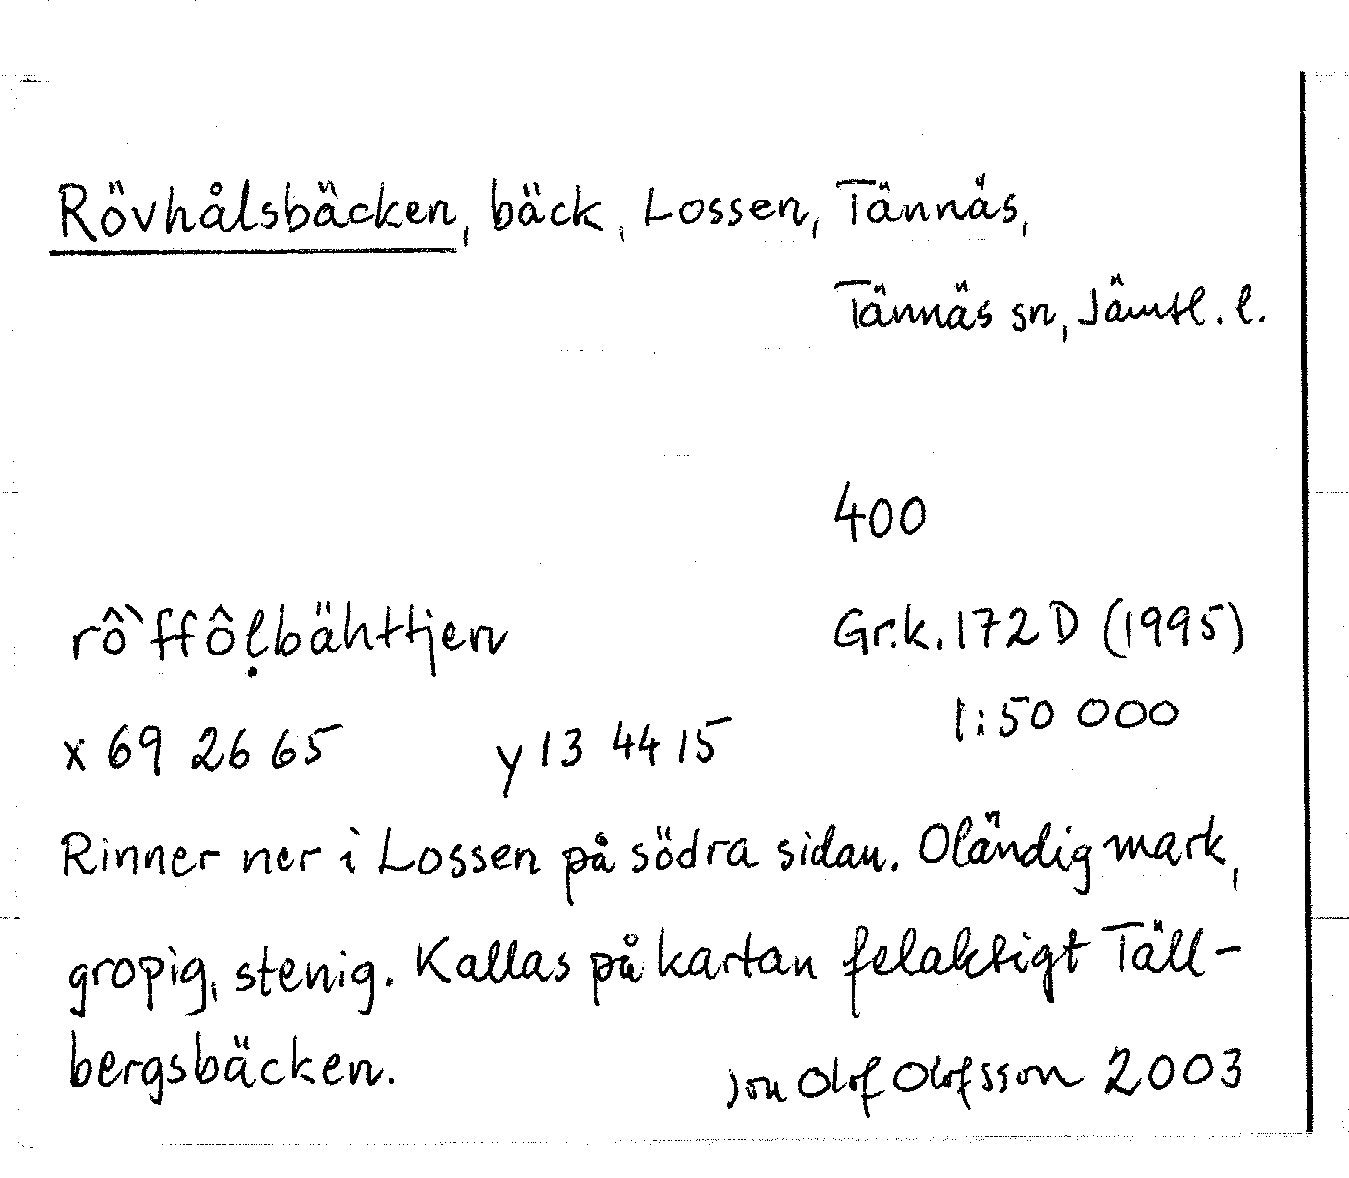 Rövhålsbäcken, bäck, Lossen, Tännäs,
Tännäs sn, Jämtl. l.
400
rô`ffôḷbähttjen
Gr.k. 172 D (1995)
1:50 000
x 69 26 65 y 13 44 15
Rinner ner i Lossen på södra sidan. Oländig mark,
gropig, stenig. Kallas på kartan felaktigt Täll-
bergsbäcken.
Jon Olof Olofsson 2003